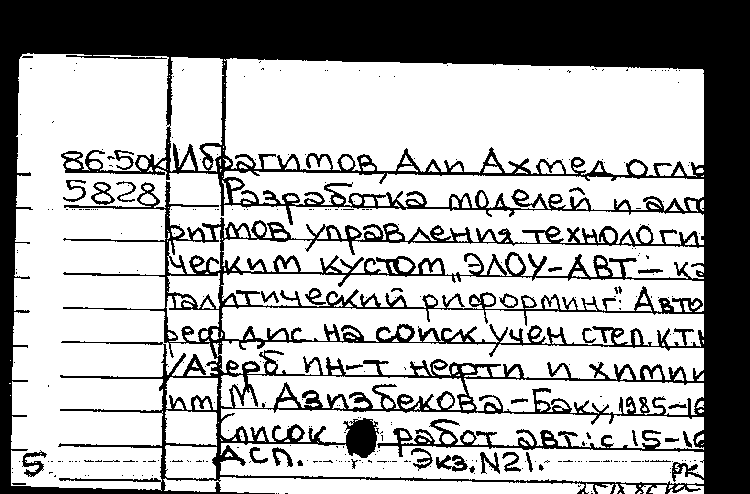 86-5ок Ибрагимов, Али Ахмед оглы
5828 Разработка моделей и алго
ритмов управления технологи-
ческим кустом „ЭЛОУ-АВТ — ка
талитический риформинг". Авто
реф. дис. на соиск. учен. степ. к.т.н
/Азерб. ин-т нефти и химии
им М. Азизбекова.-Баку, 1985-16
Список работ авт.: с. 15-16
5 Асп. Экз. N21.
РК